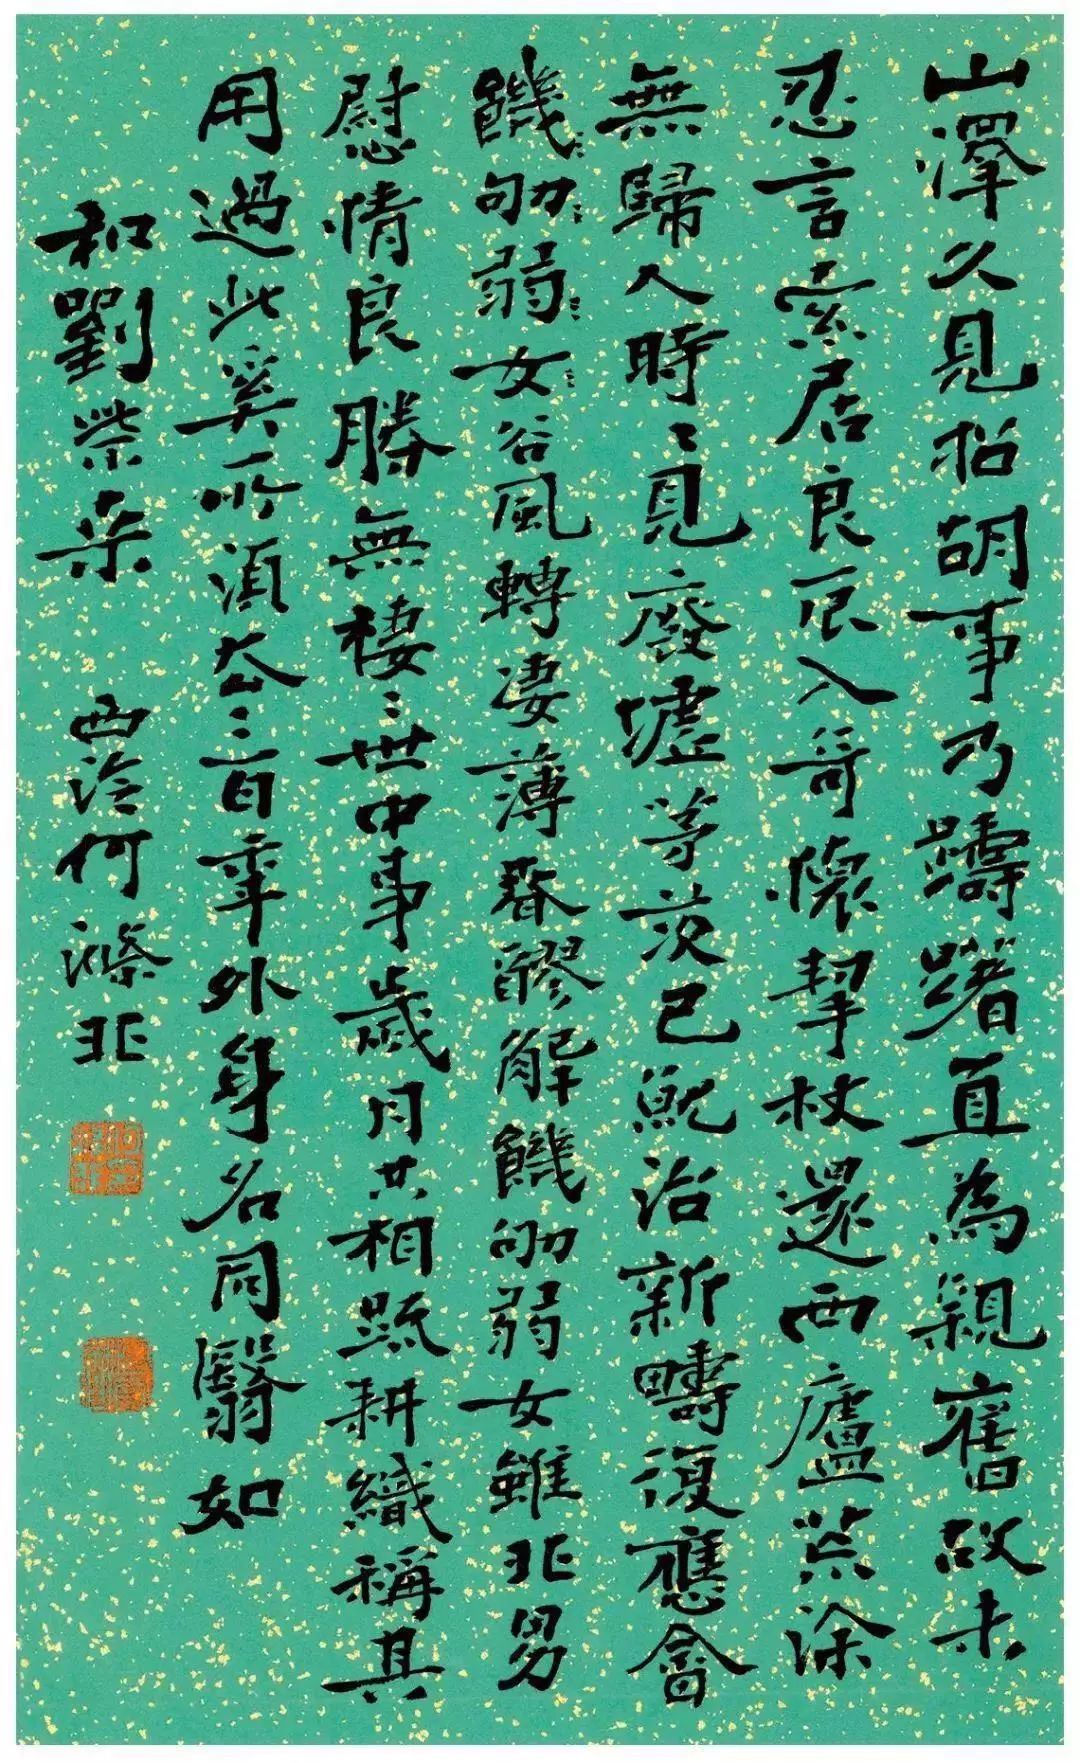 山澤久見招胡事乃躊躇直為親舊故未
忍言索居良辰入奇懷挈杖還西廬荒涂
無歸人時〻見廢墟茅茨已就治新疇復應會
饑劬弱女谷風轉淒薄春醪解饑劬弱女雖非男
慰情良勝無棲〻世中事歲月共相疏耕織稱其
用過此奚所須去〻百年外身名同翳如
和劉柴桑 西泠何滌非